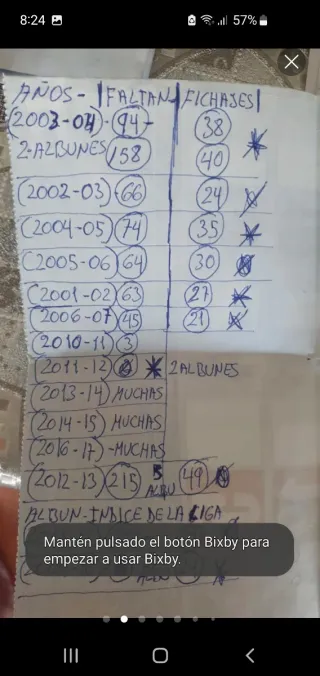 8:24 57%
AÑOS - | FALTAN | FICHAJES |
(2003-04) - 94 - 38
2 ALBUNES 158 40
(2002-03) - 66 24
(2004-05) 74 35
(2005-06) 64 30
(2001-02) 63 27
(2006-07) 45 21
(2010-11) 3
(2011-12) 2 ALBUNES
(2013-14) MUCHAS
(2014-15) MUCHAS
(2016-17) - MUCHAS
(2012-13) 215 49
ALBUN-INDICE DE LA LIGA
Mantén pulsado el botón Bixby para
empezar a usar Bixby.